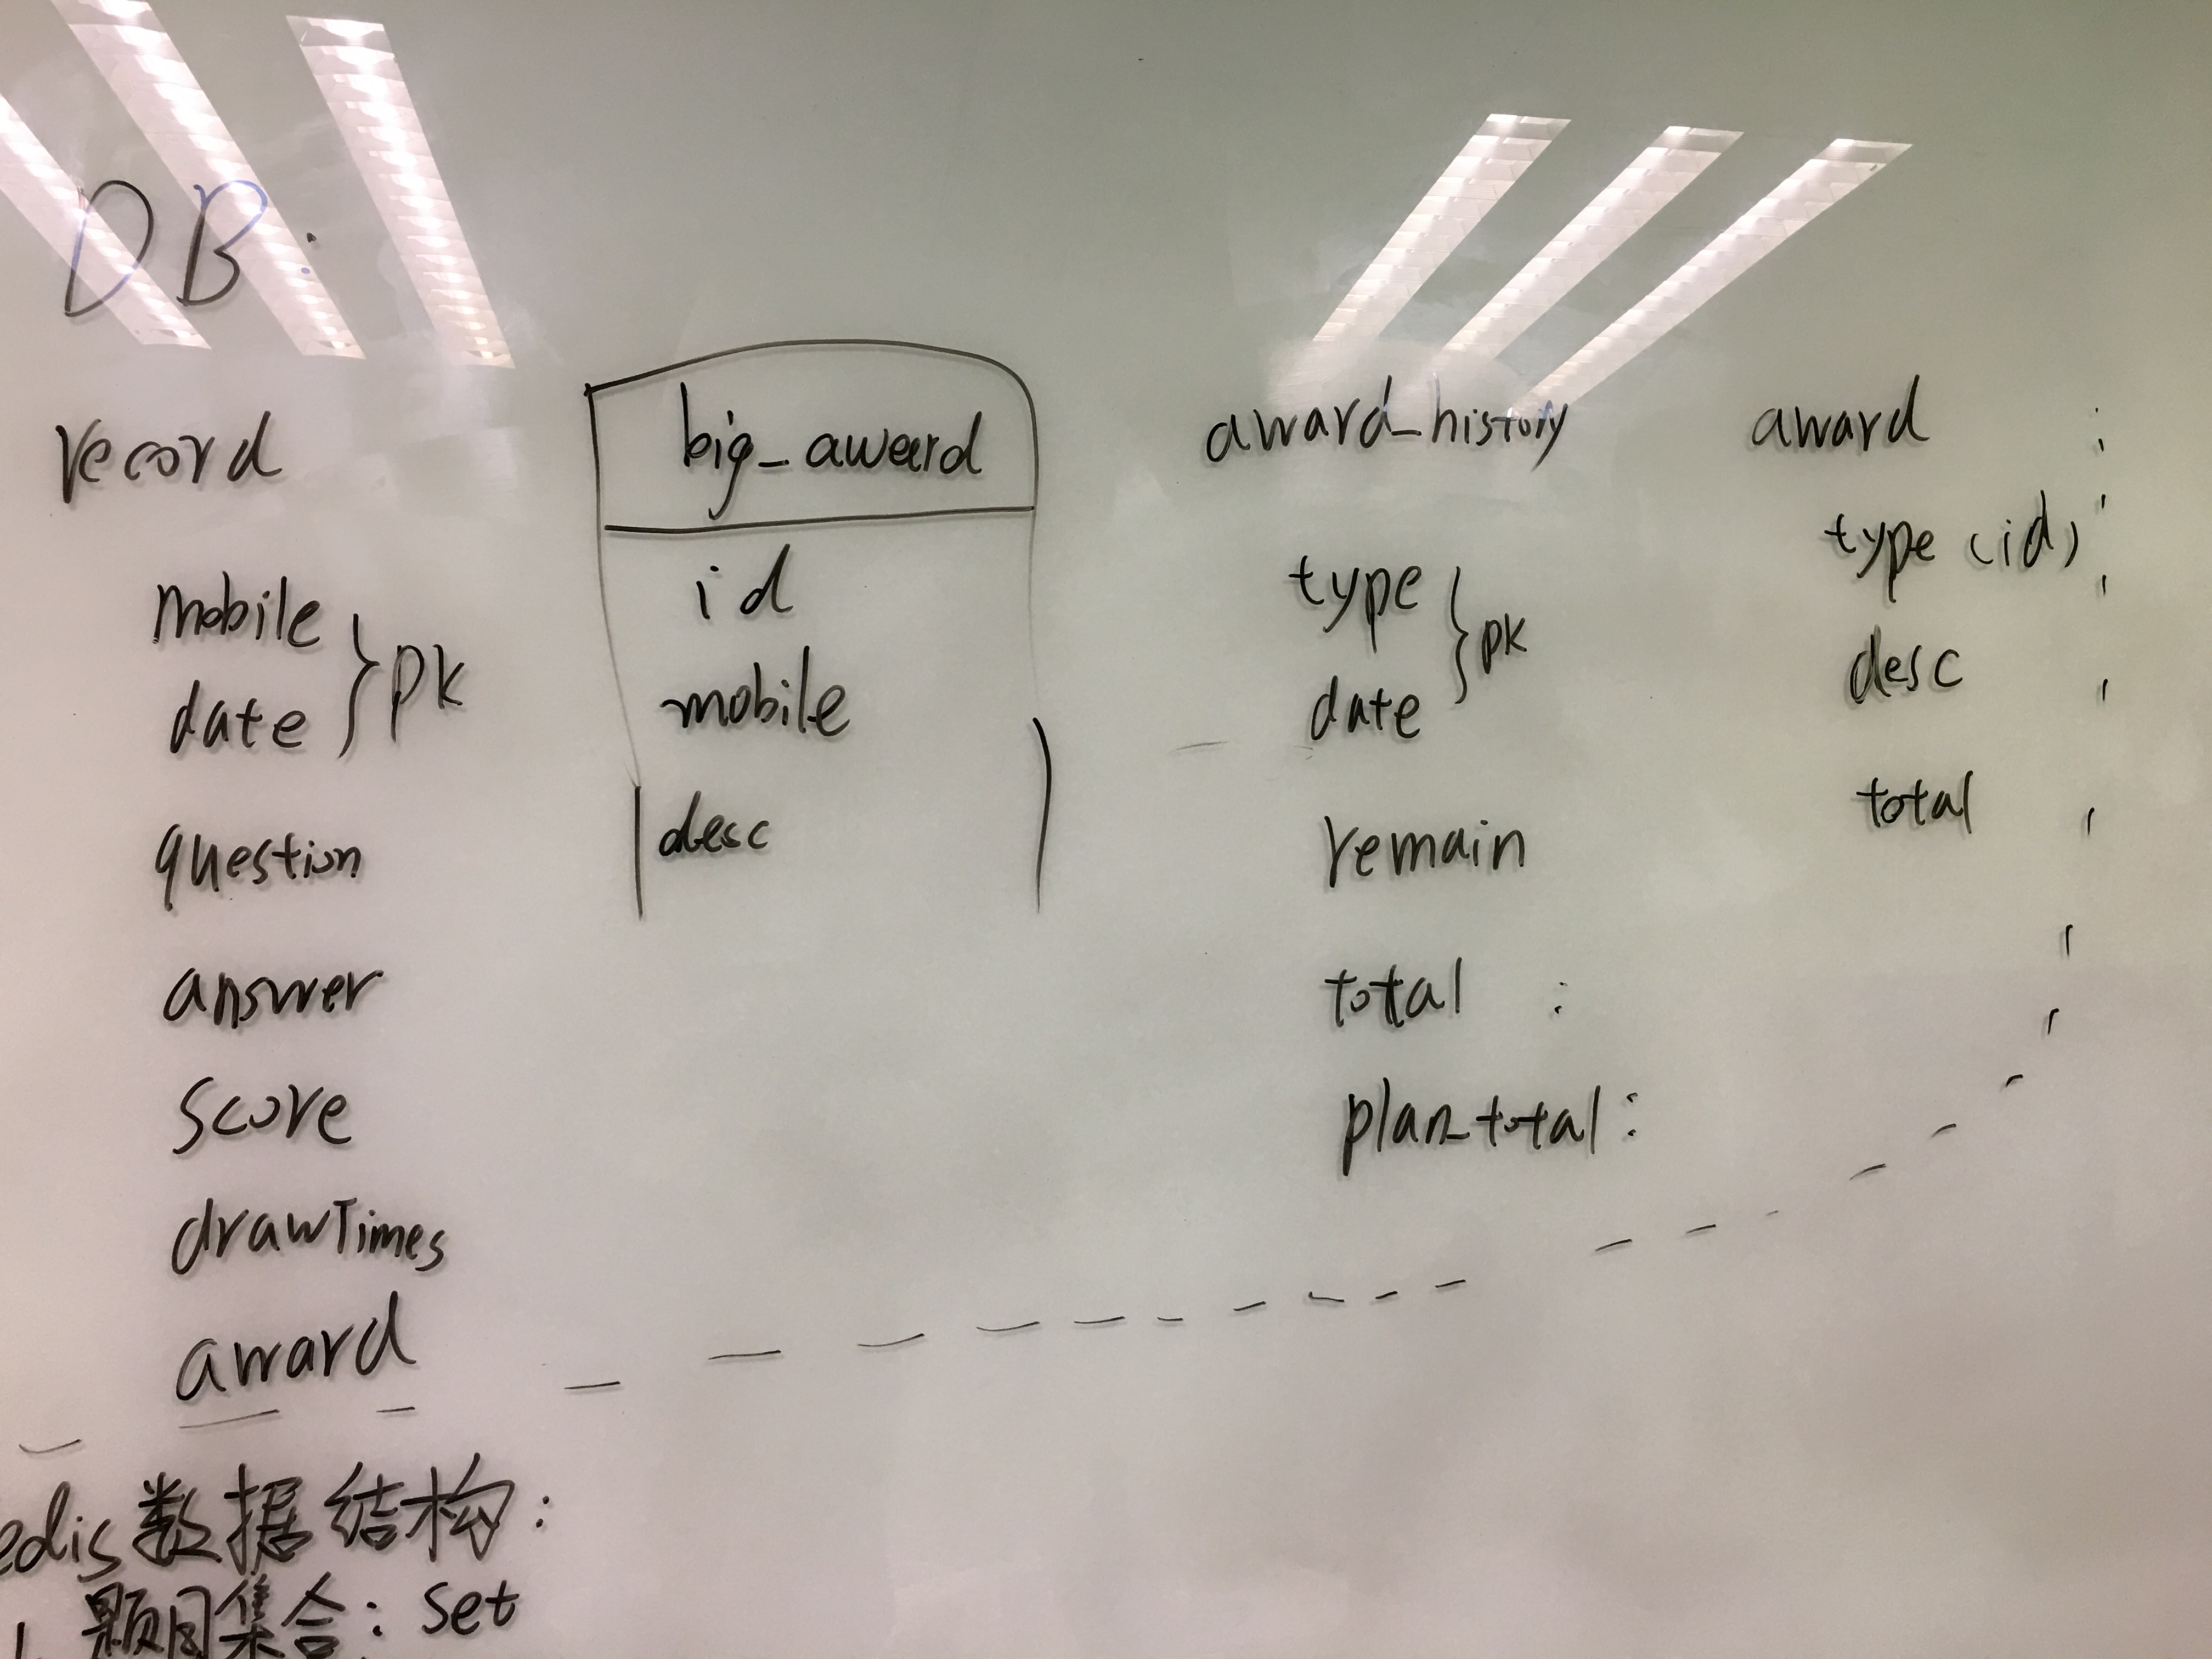 DB:
record
mobile
date
pk
question
answer
score
drawTimes
award
big_award
id
mobile
desc
award_history
type
date
pk
remain
total :
plan_total:
award
type (id)
desc
total
edis数据结构:
1. 题目集合: set